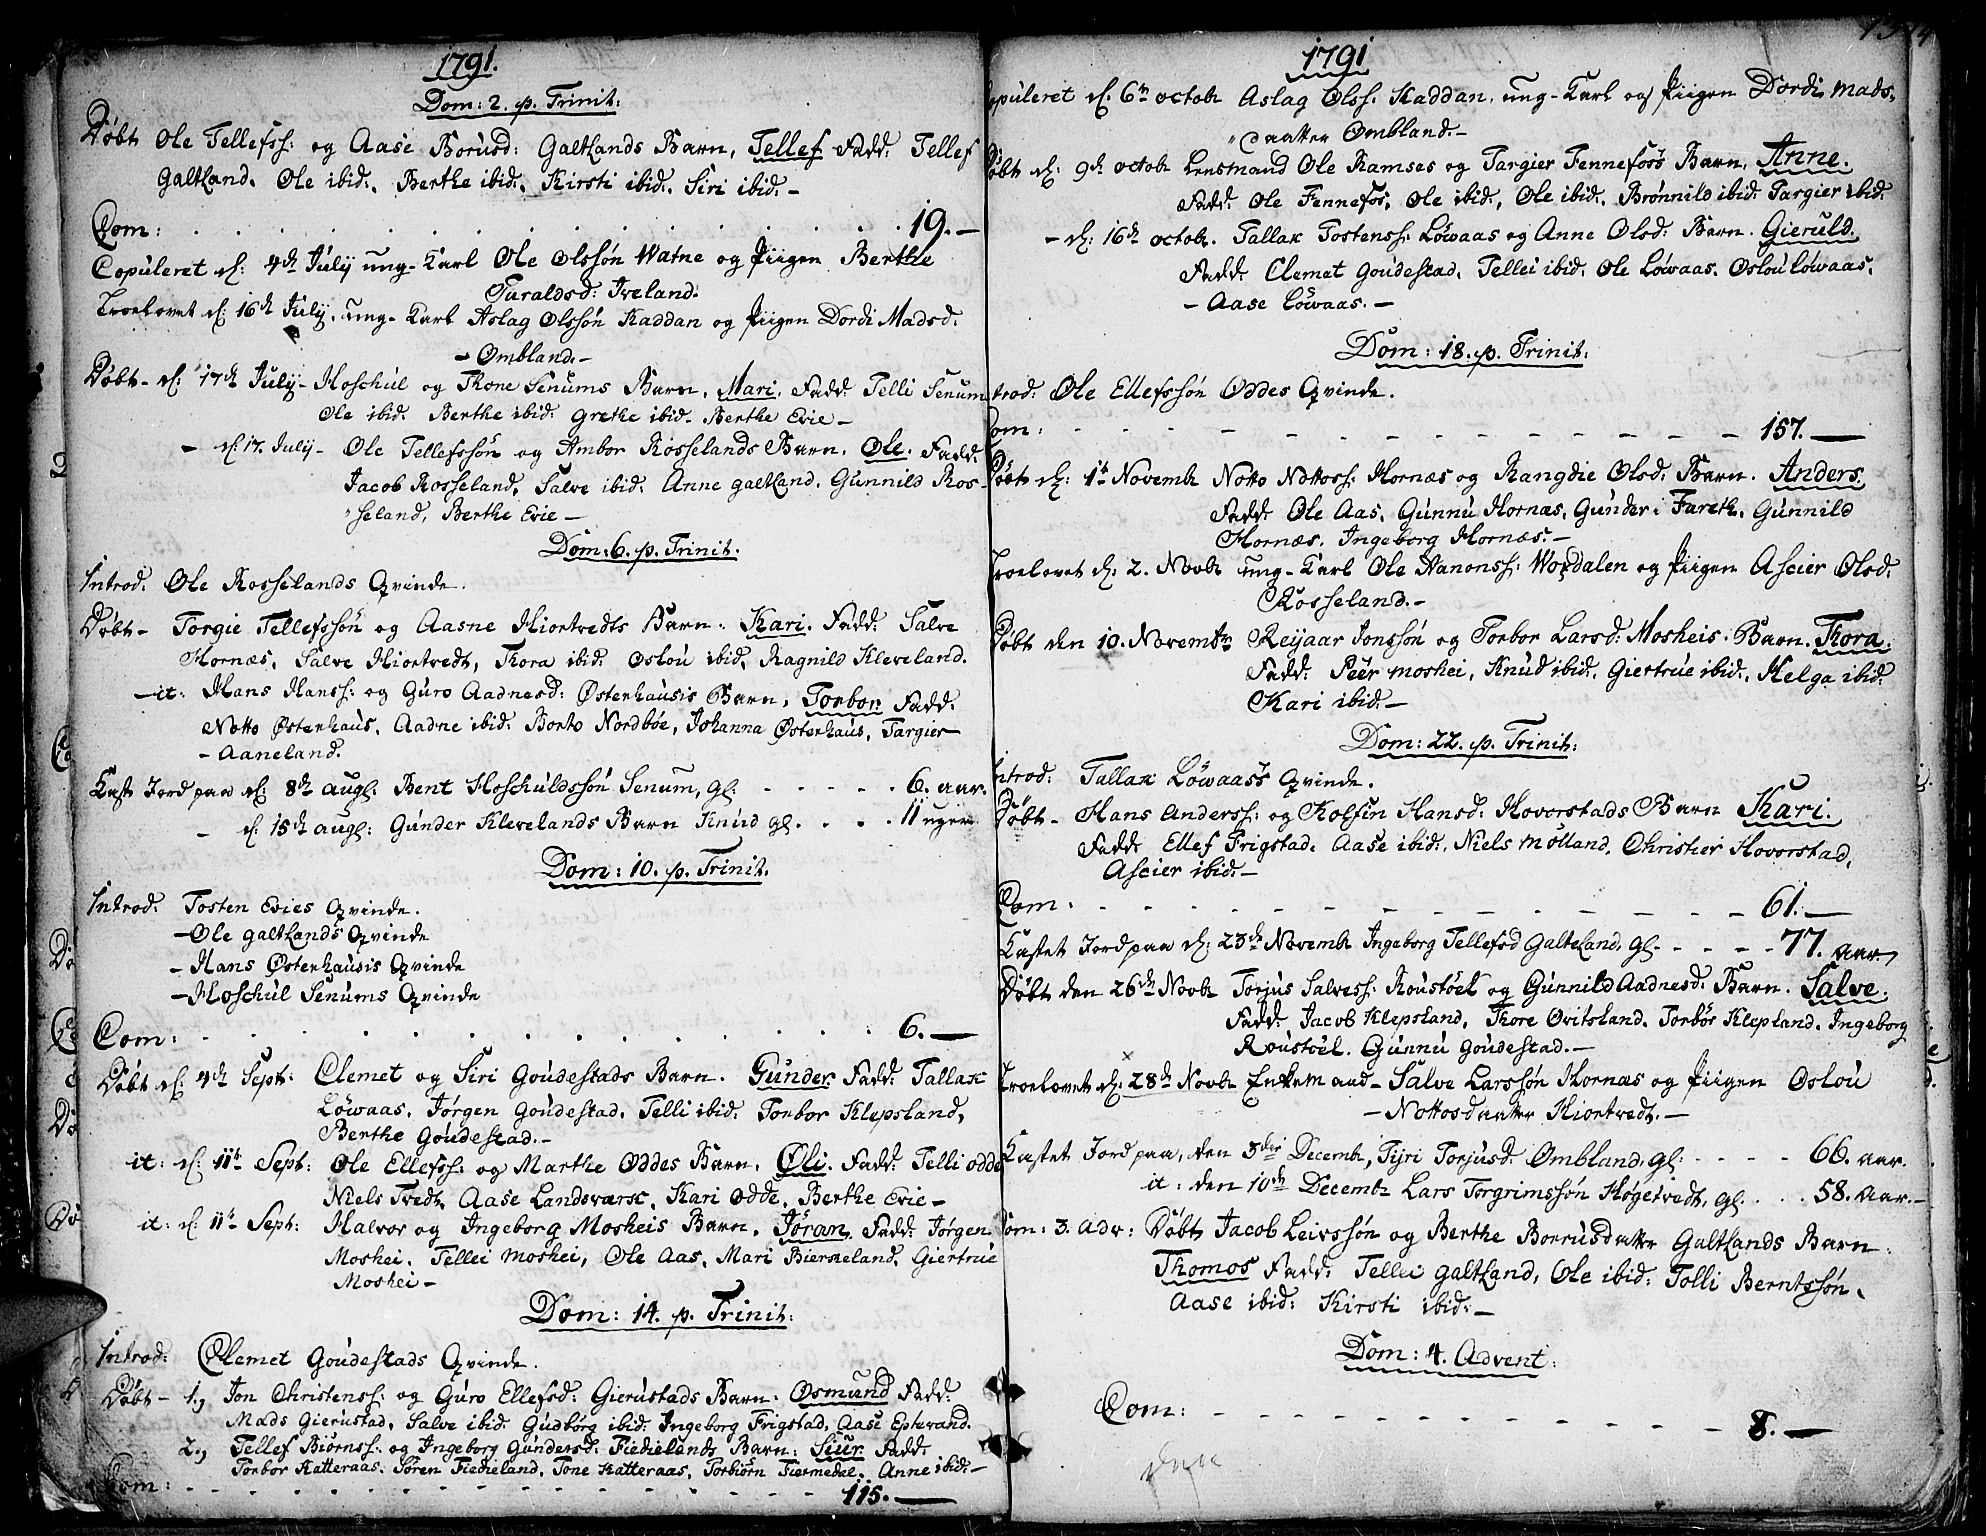 1791.
Dom: 2. p. Trinit:
Døbt Ole Tellefss: og Aase Borusd: Galtlands Barn, Tellef Fadd: Tellef
Galtland. Ole ibid:, Berthe ibid:, Kirsti ibid. Siri ibid. –
Com: . . . . . . . . . . . . . 19. –
Copuleret d: 4de July ung-Karl Ole Olssøn Watne og Piigen Berthe
Taraldsd: Ireland.
Troelovet d: 16de July, ung-Karl Aslag Olssøn Kaddan og Piigen Dordi Madsd:
– Ombland. –
Døbt – d: 17de July – Hoschul og Thone Senums Barn, Mari. Fadd: Telli Senum
Ole ibid. Berthe ibid: Grethe ibid. Berthe Evie –
– d: 17. July – Ole Tellefssøn og Ambor Rosselands Barn. Ole. Fadd:
Jacob Rosseland, Salve ibid: Anne Galtland. Gunnild Ros-
"seland, Berthe Evie –
Dom: 6. p. Trinit:
Introd. Ole Rosselands Qvinde.
Døbt – Torgie Tellefssøn og Aasne Hiortvedts Barn: Kari. Fadd: Salve
Hornæs, Salve Hiortvedt, Thora ibid: Oslou ibid, Ragnild Kleveland.
– it: Hans Hanss: og Guro Aadnesd: Østerhausis Barn, Torbor Fadd:
Notto Østerhaus, Aadne ibid: Borto Nordbøe, Johanna Østerhaus, Targier
– Aaneland.
Kast Jord paa d: 8de Augl: Bent Hoschuldssøn Senum, gl: - - - - - 6. aar.
– d: 15de Augl: Gunder Klevelands Barn Knud gl. . . . 11 uger
Dom: 10. p. Trinit.
Introd: Tosten Evies Qvinde.
– Ole Galtlands Qvinde
– Hans Østerhausis Qvinde
– Hoschul Senums Qvinde
Com: . . . . . . . . . . . . . 6. —
Døbt d: 4de Sept: Clemet og Siri Goudestads Barn. Gunder Fadd: Tallax
Löwaas, Jørgen Goudestad, Telli ibid: Torbor Klepsland,
Berthe Goudestad. –
it: d: 11te Sept: Ole Ellefss: og Marthe Oddes Barn, Øli. Fadd: Telli Odde
Niels Tvedt, Aase Landsværk, Kari Odde, Berthe Evie –
it: d: 11te Sept: Halvor og Ingeborg Mosheis Barn, Jöran. Fadd: Jørgen
Moshei, Tellei Moshei, Ole Aas, Mari Bierkeland, Giertrue
Moshei –
Dom: 14. p. Trinit:
Introd: Clemet Goudestads Qvinde.
Døbt – 1., Jon Christenss: og Guro Ellefsd: Gierustads Barn: Osmund Fadd:
Mads Gierustad, Salve ibid Gudbörg ibid Ingeborg Frigstad, Aase Epterand.
2., Tellef Biørnss: og Ingeborg Gundersd: Fiedielands Barn: Siur Fadd:
Torbor Katteraas. Søren Fiedieland, Tone Katteraas, Torbiørn Fiermedal. Anne ibid. –
Com: - - - - - - - - - - - 115. —
1791
Copuleret d. 6te octobr Aslag Olss: Kaddan, ung-Karl og Piigen Dordi Mads-
"daatter Ombland. –
Døbt d: 9de octobr Lensmand Ole Ramses og Targier Fennefoss Barn, Anne.
Fadd: Ole Fennefos, Ole ibid., Ole ibid:, Brønnild ibid: Targier ibid:
– d: 16de octobr. Tallax Tostenss: Löwaas og Anne Olsd: Barn. Gieruld.
Fadd: Clemet Goudestad, Tellei ibid: Ole Löwaas. Oslou Löwaas,
– Aase Löwaas. –
Dom: 18. p. Trinit:
Introd: Ole Ellefssøn Oddes Qvinde.
Com: - - - - - - - - - - - 157. —
Døbt d: 1te Novembr Notto Nottoss: Hornæs og Rangdie Olsd: Barn. Anders
Fadd: Ole Aas, Gunnu Hornæs, Gunder i Fareth, Gunnild
Hornæs. Ingeborg Hornæs. –
Troelovet d: 2. Novbr ung-Karl Ole Hanonss: Woxdalen og Piigen Ascier Olsd:
Rosseland. –
Døbt den 10. Novembr Reijaar Jonssøn og Torbor Larsd: Mosheis Barn. Thora.
Fadd: Peer Moshei, Knud ibid:, Giertrue ibid:, Helga ibid:
Kari ibid: –
Dom: 22. p. Trinit:
Introd: Tallax Löwaas's Qvinde.
Døbt – Hans Anderss: og Kolfin Hansd: Hoverstads Barn Kari.
Fadd: Ellef Frigstad. Aase ibid:, Niels Mölland, Christier Hoverstad,
Ascier ibid: –
Com: - - - - - - - - - - - 61. —
Kastet Jord paa d: 23de Novembr Ingeborg Tellefsd Galteland, gl. - - - - 77. aar
Døbt den 26de Novbr Torjus Salvess: Roustöel og Gunnild Aadnesd: Barn. Salve:
Fadd: Jacob Klepsland, Thore Ovitsland. Torbör Klepland. Ingeborg
Roustöel. Gunnu Goudestad. –
Troelovet d: 28de Novbr Enkemand – Salve Larssøn Hornæs og Piigen Oslou
– Nottosdaatter Hiortvedt. –
Kastet Jord paa, den 3die Decembr, Tyri Torjusd. Ombland, gl: - - - - 66. aar.
it: den 10de Decembr Lars Torgrimssøn Høgetvedt, gl. . . . 58. aar. –
Dom: 3. Adv: Døbt Jacob Leivssøn og Berthe Borrusdatter Galtlands Barn:
Thomos Fadd: Tellei Galtland, Ole ibid: Tolli Berntssøn,
Aase ibid: Kirsti ibid: –
Dom: 4. Advent:
Com: - - - - - - - - - - - 8. —